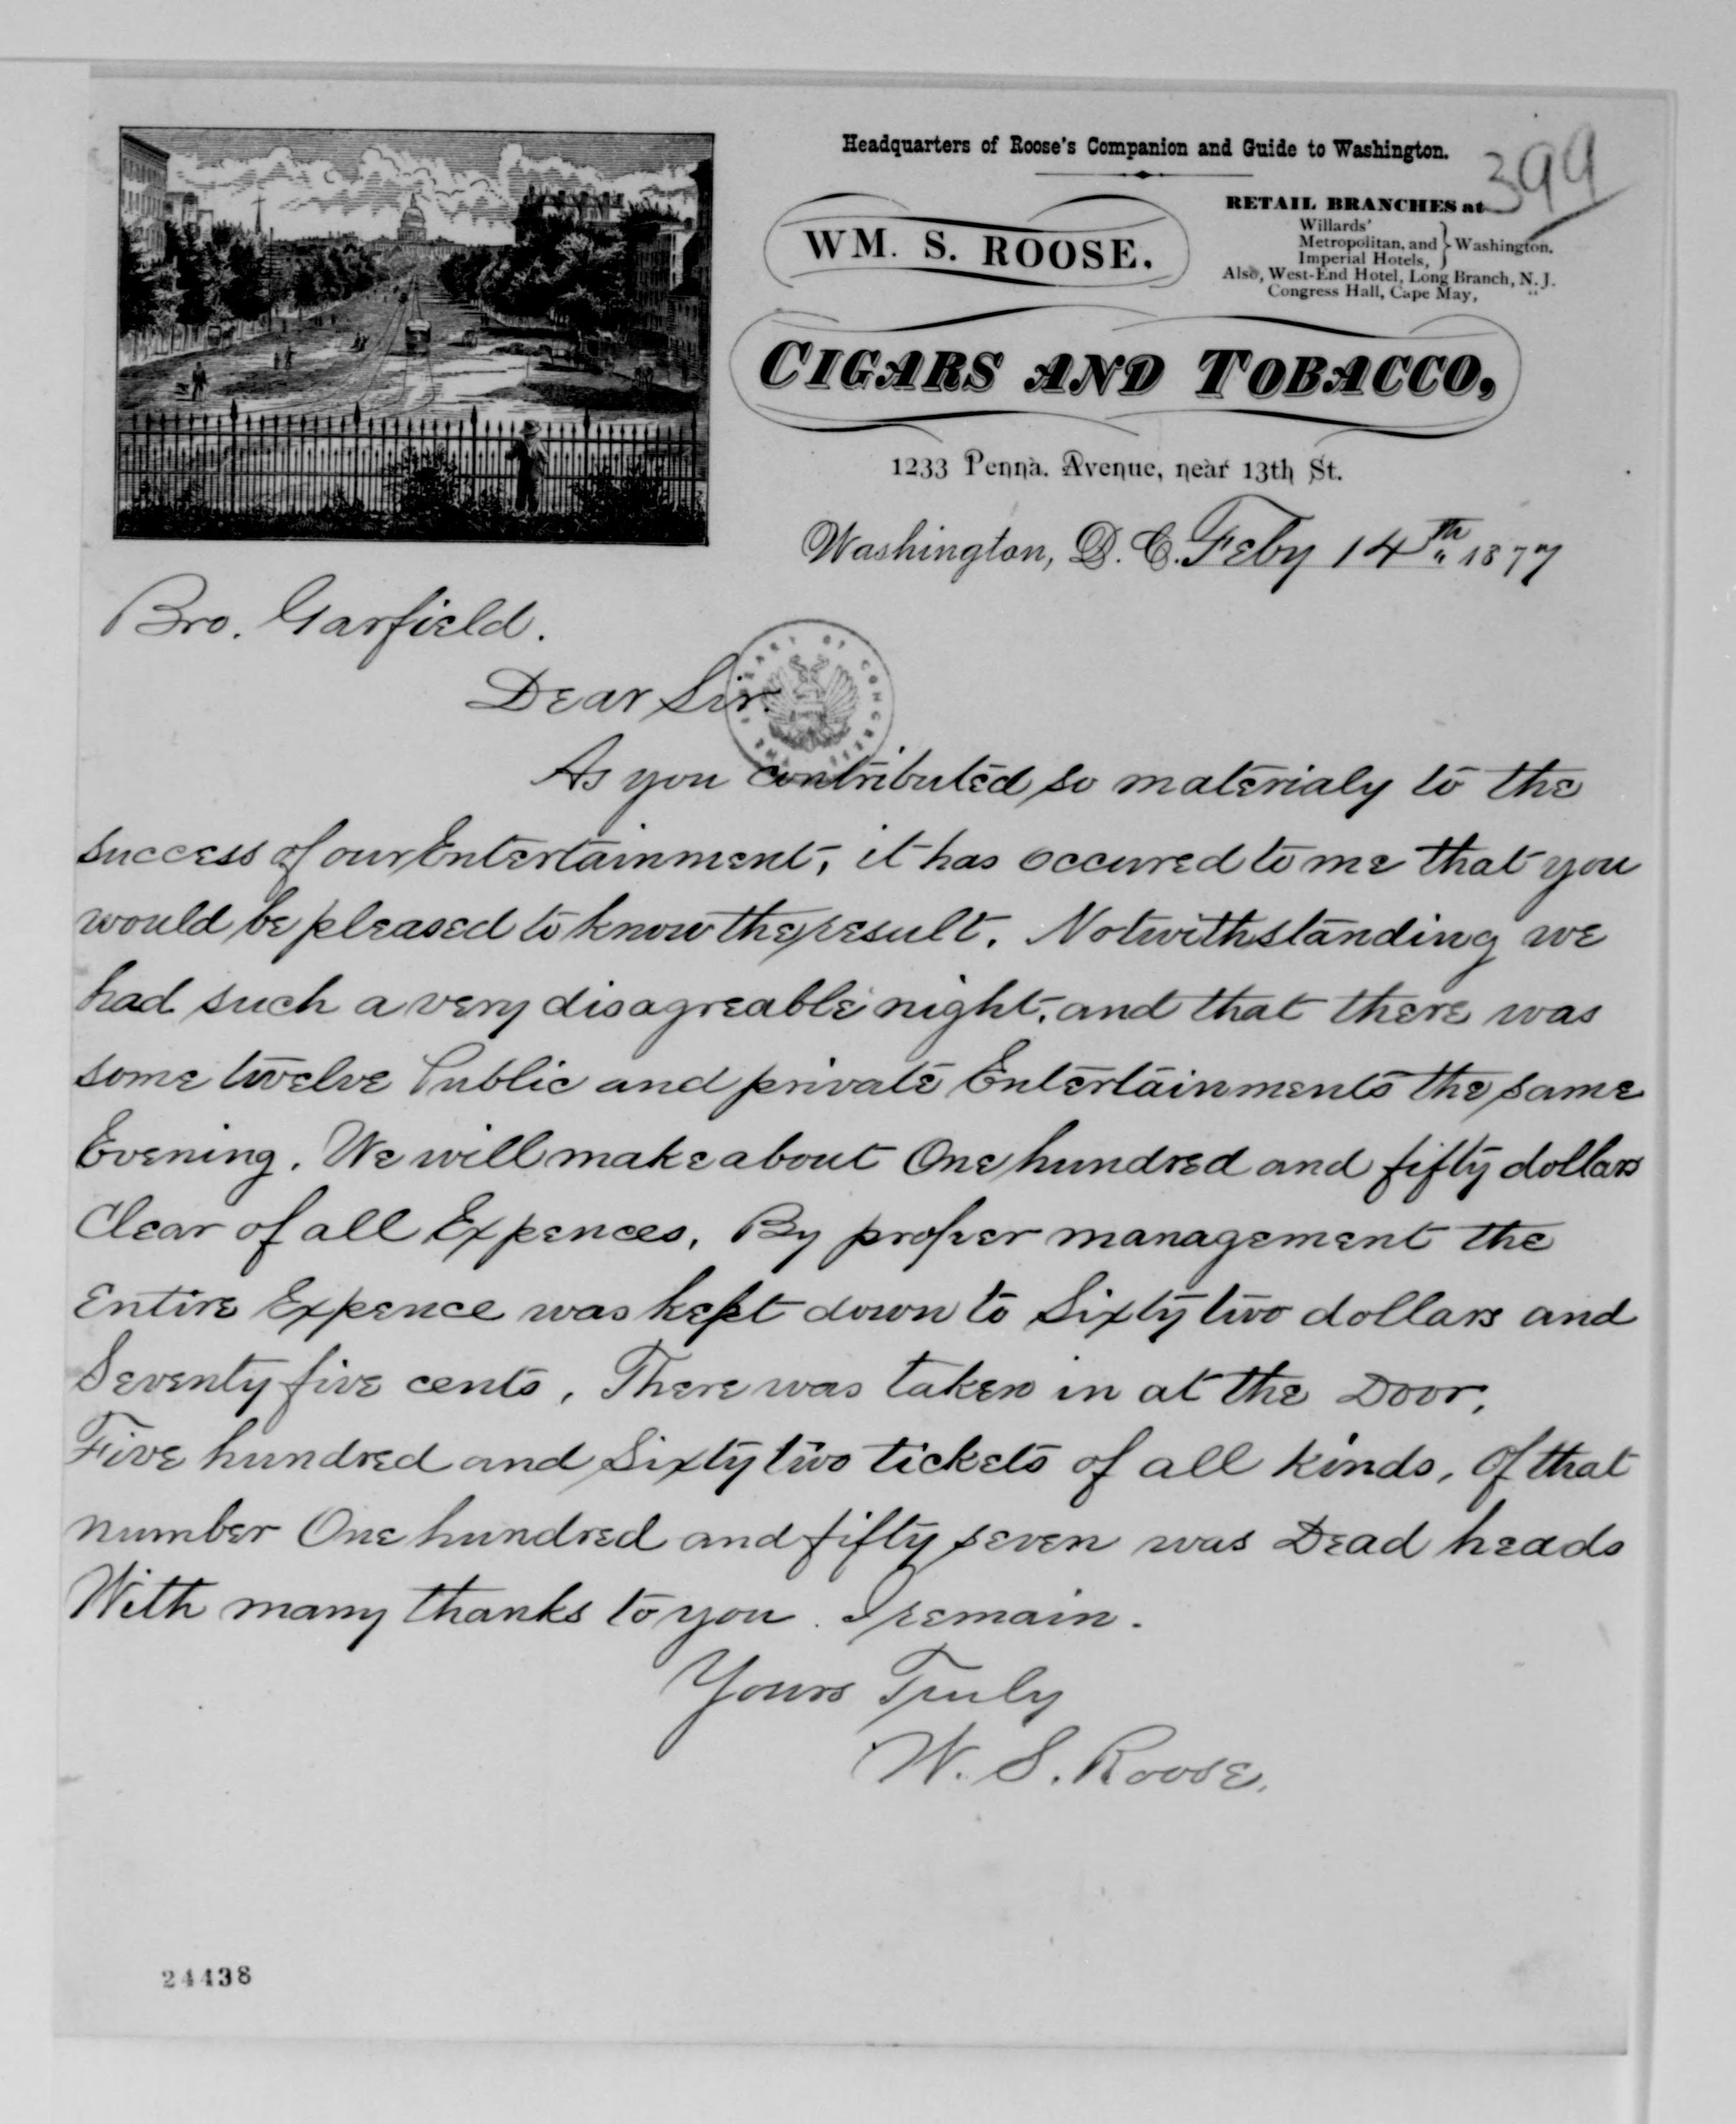 Headquarters of Roose's Companion and Guide to Washington.
399
WM. S. ROOSE.
RETAIL BRANCHES at
Willards'
Metropolitan, and } Washington.
Imperial Hotels,
Also, West-End Hotel, Long Branch, N. J.
Congress Hall, Cape May, "
CIGARS AND TOBACCO,
1233 Penna. Avenue, near 13th St.
Washington, D. C. Feby 14th 1877
Bro. Garfield.
Dear Sir.
THE LIBRARY OF CONGRESS
As you contributed so materialy to the
success of our Entertainment, it has occured to me that you
would be pleased to know the result. Notwithstanding we
had such a very disagreable night, and that there was
some twelve Public and private Entertainments the same
Evening. We will make about One hundred and fifty dollars
Clear of all Expences. By proper management the
Entire Expence was kept down to Sixty two dollars and
Seventy five cents. There was taken in at the Door,
Five hundred and Sixty two tickets of all kinds, Of that
number One hundred and fifty seven was Dead heads
With many thanks to you. I remain.
Yours Truly
W. S. Roose.
24438